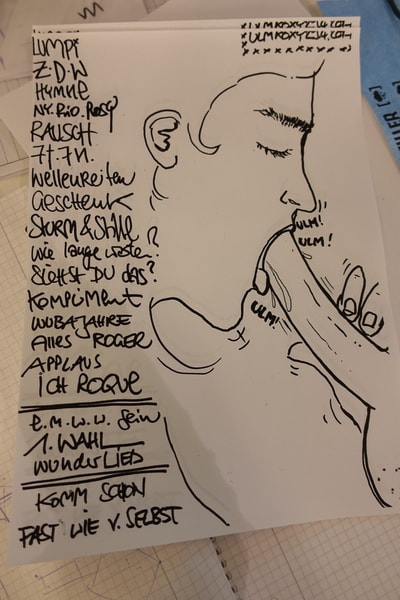 LUMPI
Z.D.W
HYMNE
NY.RIO.ROSY
RAUSCH
7T.7N.
WELLENREITEN
GESCHENK
STURM & STILLE
WIE LANGE WARTEN?
SIEHST DU DAS?
KOMPLIMENT
WUBAJAHRE
ALLES ROGER
APPLAUS
ICH ROQUE
E.M.W.W. SEIN
1. WAHL
WUNDERLIED
KOMM SCHON
FAST WIE V. SELBST
ULM!
ULM!
ULM!